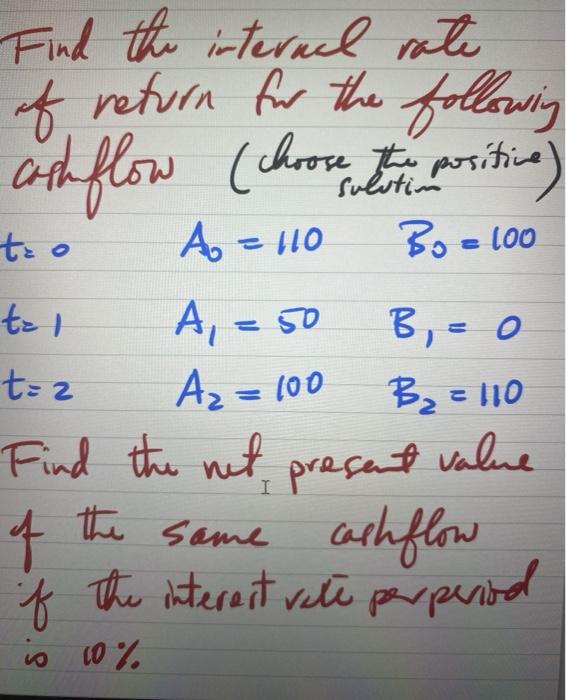 Find the internal rate
of return for the following
cashflow (choose the positive)
solution
t=0 A₀ = 110 B₀ = 100
t=1 A₁ = 50 B₁ = 0
t=2 A₂ = 100 B₂ = 110
Find the net present value
of the same cashflow
if the interest rate per period
is 10%